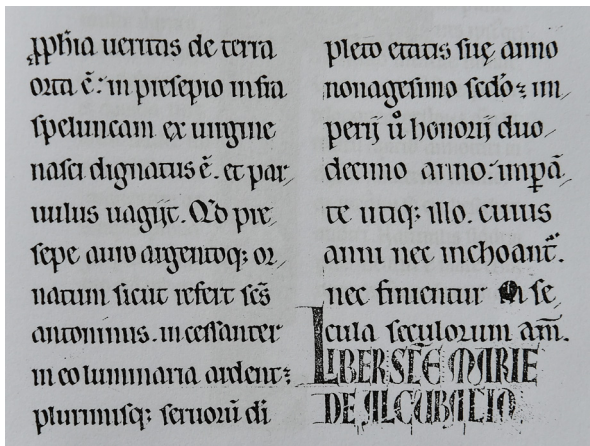 ꝓph̅ia ueritas de terra
orta ē: in presepio infra
speluncam ex uirgine
nasci dignatus ē. et par
uulus uagijt. Qd pre
sepe auro argentoq; or
natum sicut refert scs̅
antoninus. incessanter
in eo luminaria ardent:
plurimusq; seruorū di
pleto etatis suę anno
nonagesimo scdo: im
perij ů honorij duo
decimo anno: impā
te utiq; illo. cuius
anni nec inchoant̃.
nec finientur in se
cula seculorum am̅.
LIBER SC̅E MARIE
DE ALCUBACIA